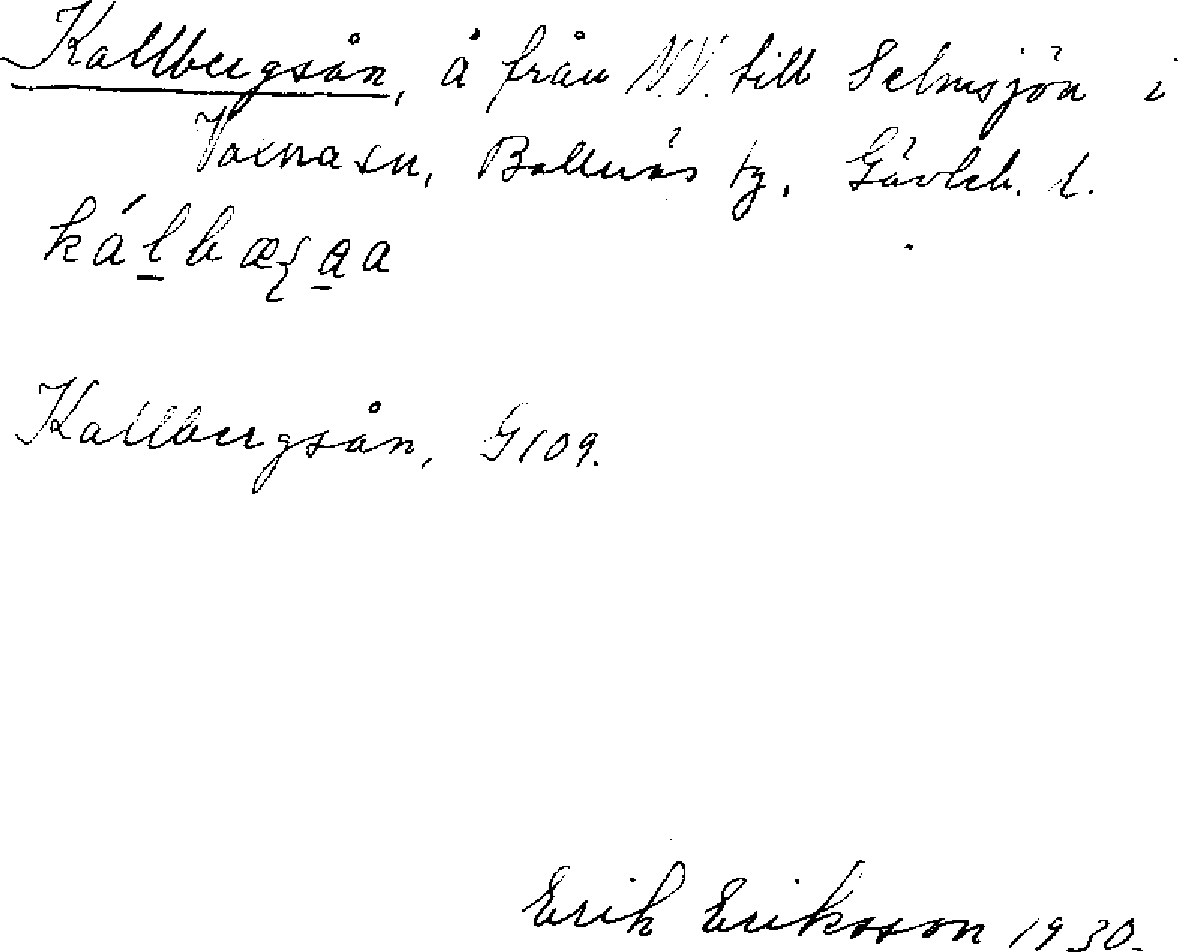 Kallbergsån, å från N.V. till Selmsjön i
Voxna sn, Bollnäs tg, Gävleb. l.
Kallbergsån, G109.
Erik Erikson 1930.